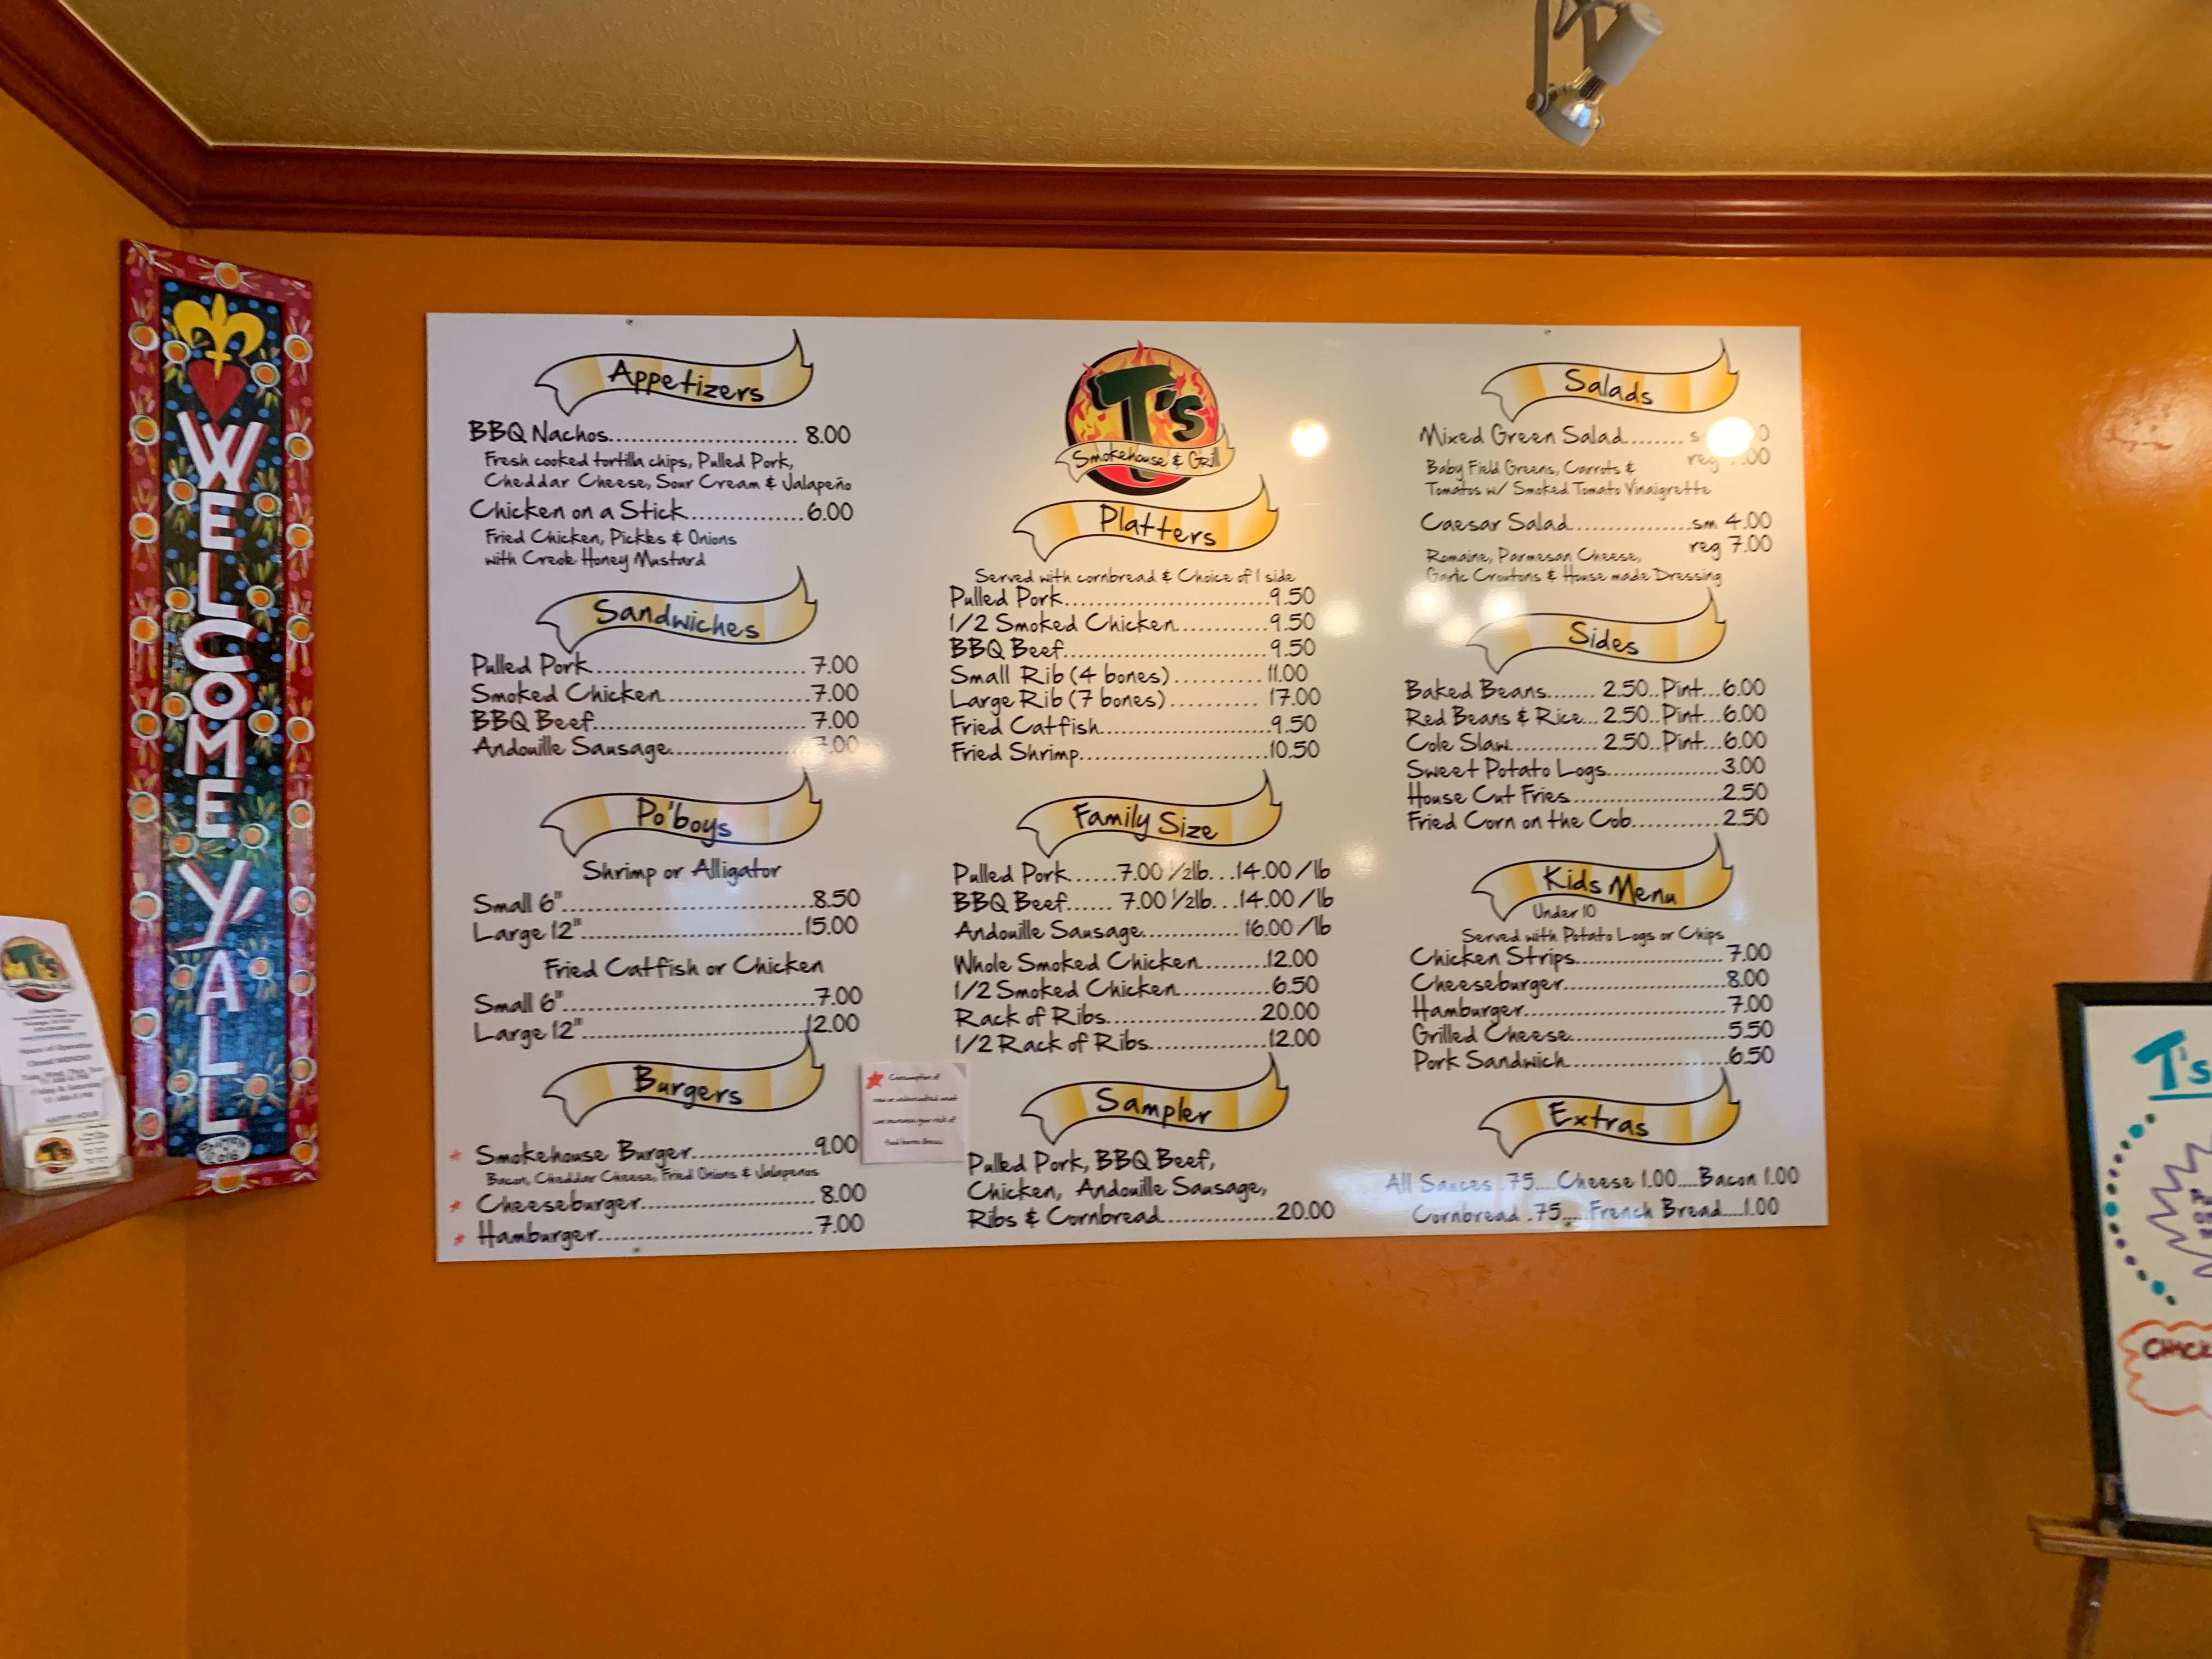 WELCOME Y'ALL
Appetizers
BBQ Nachos........................ 8.00
Fresh cooked tortilla chips, Pulled Pork,
Cheddar Cheese, Sour Cream & Jalapeño
Chicken on a Stick...............6.00
Fried Chicken, Pickles & Onions
with Creole Honey Mustard
Sandwiches
Pulled Pork........................... 7.00
Smoked Chicken.................. 7.00
BBQ Beef........................... 7.00
Andouille Sausage................. 7.00
Po'boys
Shrimp or Alligator
Small 6"................................8.50
Large 12"............................15.00
Fried Catfish or Chicken
Small 6"................................7.00
Large 12"............................12.00
Burgers
* Smokehouse Burger................9.00
Bacon, Cheddar Cheese, Fried Onions & Jalapenos
* Cheeseburger...................... 8.00
* Hamburger........................... 7.00
Consumption of
raw or undercooked meat
can increase your risk of
food borne illness
T's
Smokehouse & Grill
Platters
Served with cornbread & Choice of 1 side
Pulled Pork..........................9.50
1/2 Smoked Chicken............9.50
BBQ Beef..........................9.50
Small Rib (4 bones)........... 11.00
Large Rib (7 bones)........... 17.00
Fried Catfish......................9.50
Fried Shrimp........................10.50
Family Size
Pulled Pork......7.00 ½lb...14.00/lb
BBQ Beef...... 7.00 ½lb...14.00/lb
Andouille Sausage............16.00/lb
Whole Smoked Chicken.........12.00
1/2 Smoked Chicken............6.50
Rack of Ribs....................20.00
1/2 Rack of Ribs...............12.00
Sampler
Pulled Pork, BBQ Beef,
Chicken, Andouille Sausage,
Ribs & Cornbread..............20.00
Salads
Mixed Green Salad........
reg
Baby Field Greens, Carrots &
Tomatos w/ Smoked Tomato Vinaigrette
Caesar Salad...............sm 4.00
reg 7.00
Romaine, Parmesan Cheese,
Garlic Croutons & House made Dressing
Sides
Baked Beans....... 2.50..Pint...6.00
Red Beans & Rice... 2.50..Pint...6.00
Cole Slaw............ 2.50..Pint...6.00
Sweet Potato Logs................3.00
House Cut Fries.....................2.50
Fried Corn on the Cob............2.50
Kids Menu
Under 10
Served with Potato Logs or Chips
Chicken Strips..................... 7.00
Cheeseburger.......................8.00
Hamburger...........................7.00
Grilled Cheese......................5.50
Pork Sandwich......................6.50
Extras
All Sauces .75....Cheese 1.00....Bacon 1.00
Cornbread .75.... French Bread....1.00
T's
Hours of Operation
Closed MONDAY
HAPPY HOUR
T's